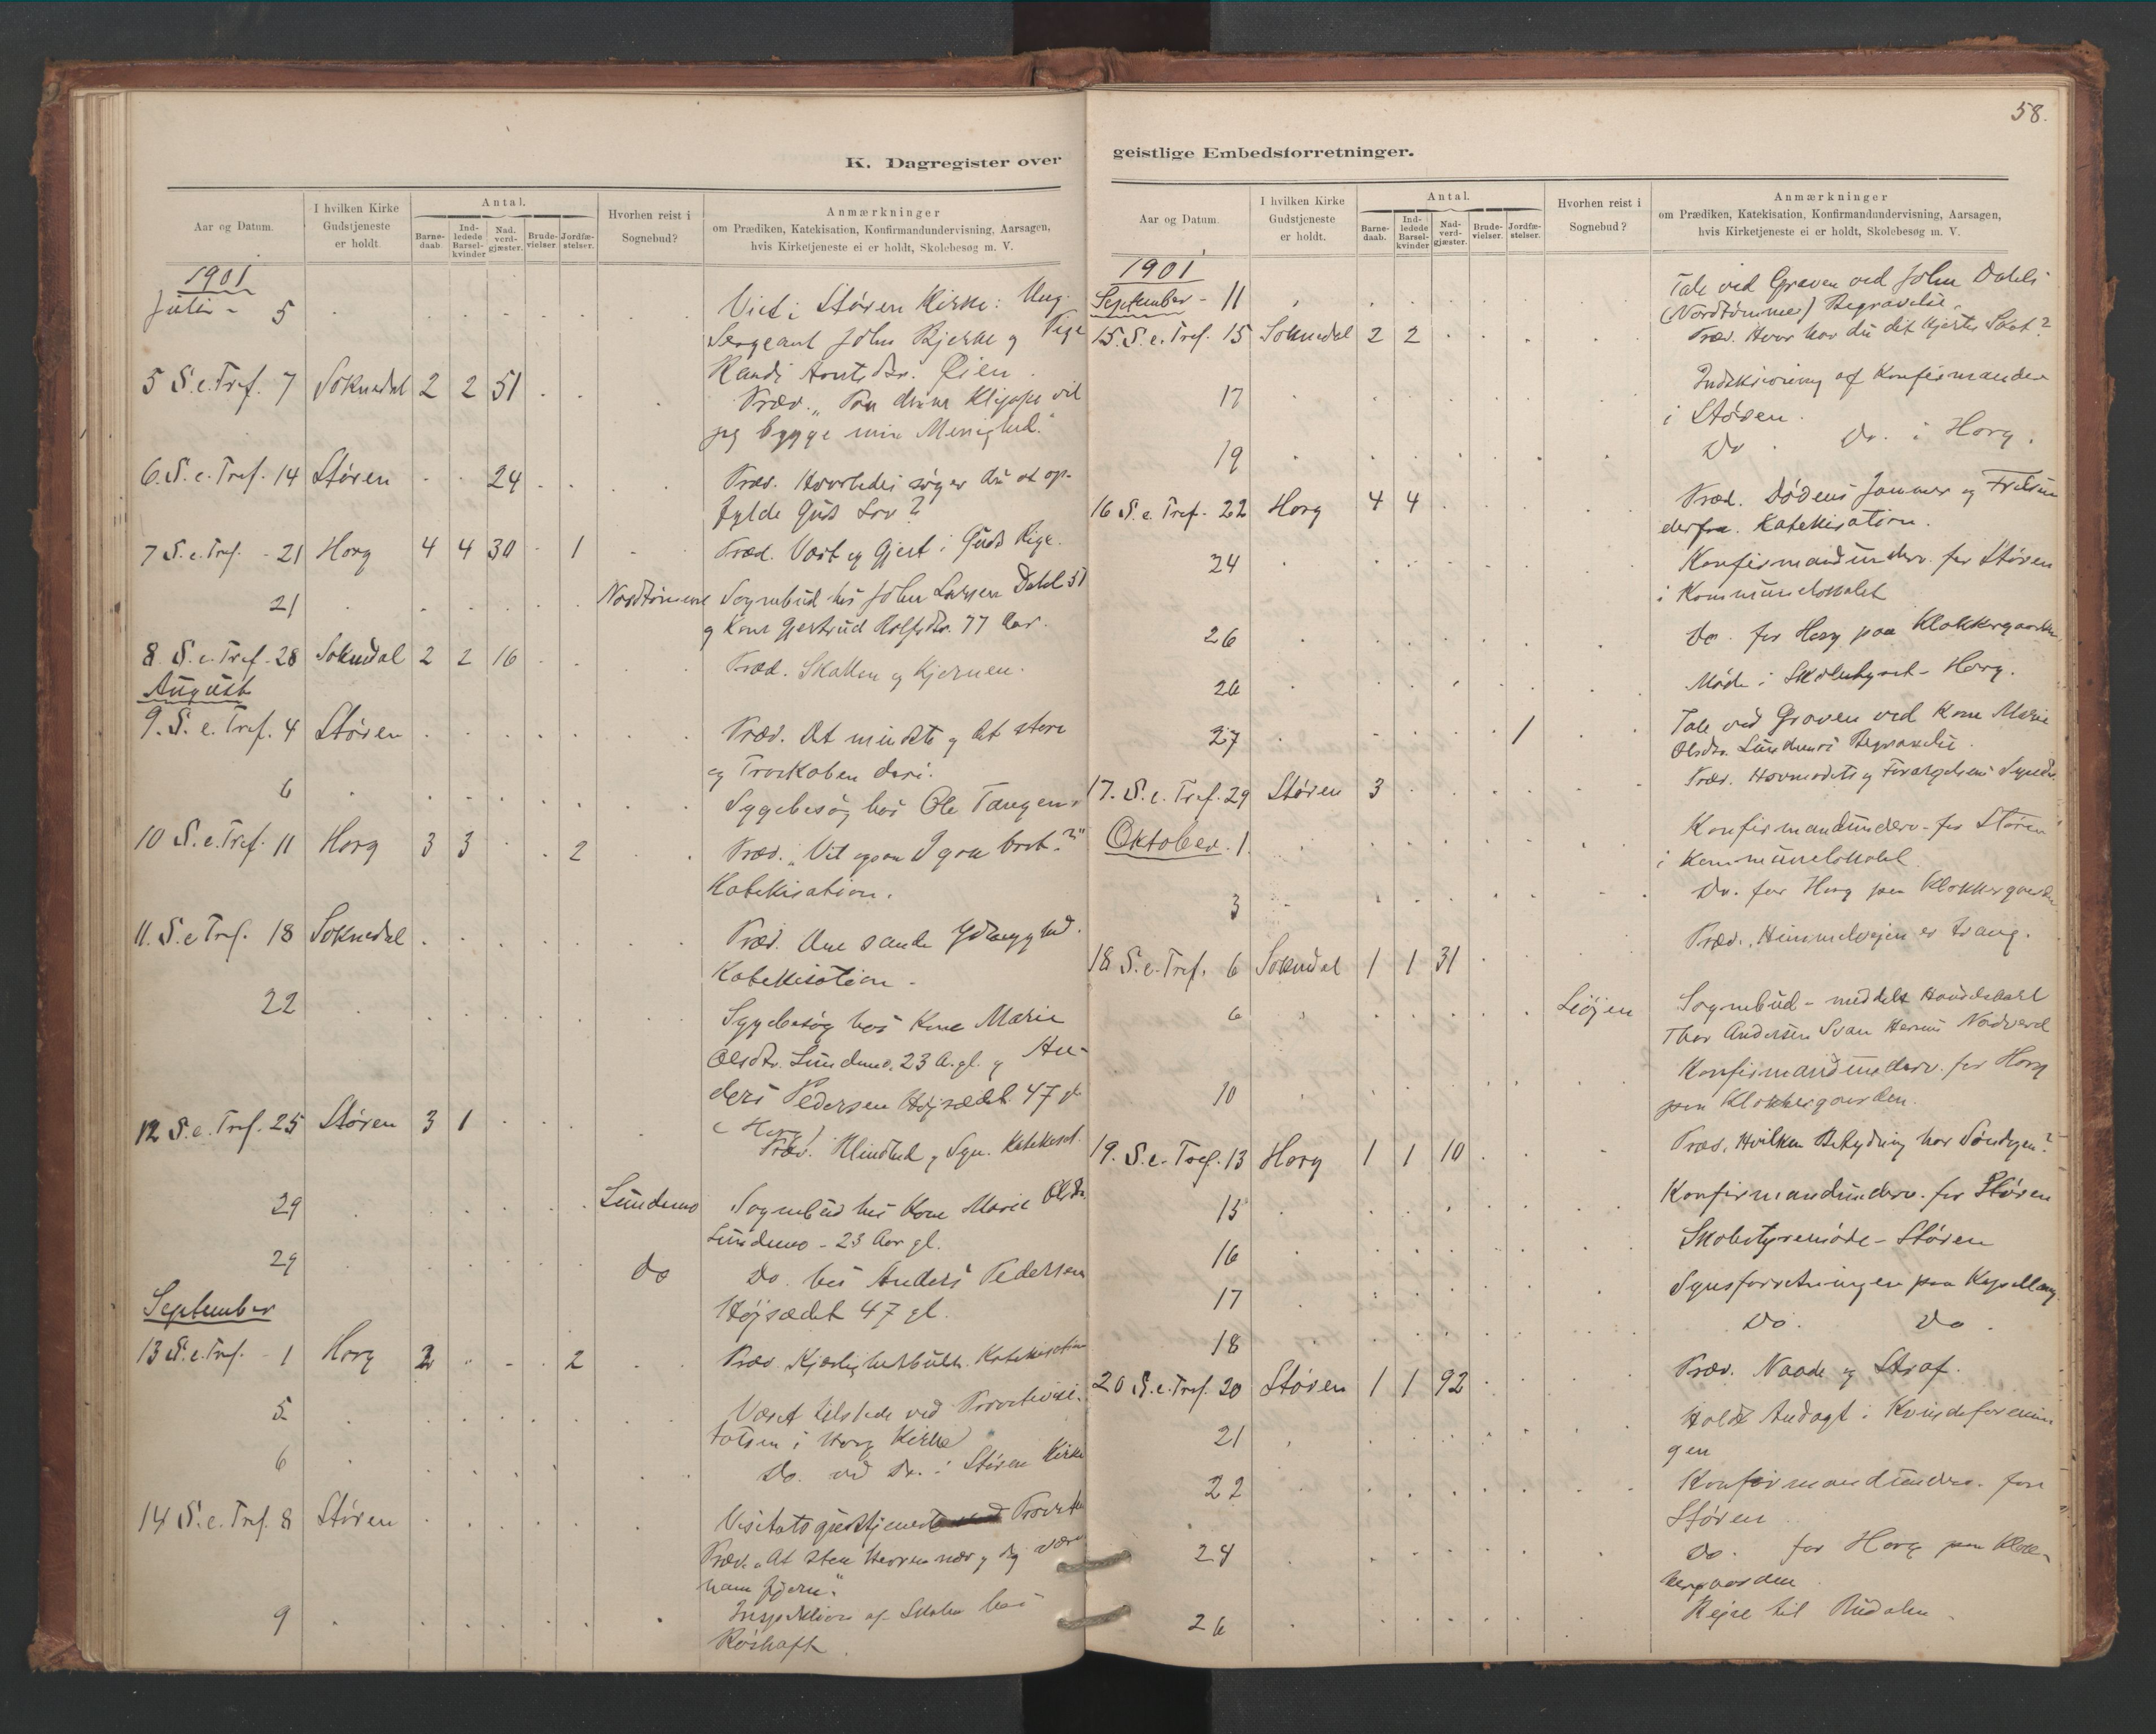 58.
K. Dagregister over
geistlige Embedsforretninger.
Aar og Datum.
I hvilken Kirke
Gudstjeneste
er holdt.
Antal.
Barne-
daab.
Ind-
ledede
Barsel-
kvinder
Nad.
verd-
gjæster.
Brude-
vielser.
Jordfæ-
stelser.
Hvorhen reist i
Sognebud?
Anmærkninger
om Prædiken, Katekisation, Konfirmandundervisning, Aarsagen,
hvis Kirketjeneste ei er holdt, Skolebesøg m. V.
1901
Juli - 5 Viet i Støren Kirke: Ung.
Sergeant John Bjerke og Pige
Randi Arntsdtr. Øien.
5 S. e. Tref. 7 Soknedal 2 2 51 Præd. „Paa denne Klippe vil
jeg bygge min Menighed."
6. S. e. Tref. 14 Støren 24 Præd. Hvorledes søger du at op-
fylde Guds Lov?
7 S. e. Tref. - 21 Horg 4 4 30 1 Præd. Vært og Gjest i Guds Rige.
21 Sognebud hos John Larsen Dahl 51
og Kone Gjertrud Rolfsdtr. 77 Aar.
8. S. e. Tref. 28 Soknedal 2 2 16 Præd. Skallen og Kjernen.
August
9. S. e. Tref. 4 Støren Præd. Det mindste og det store
og Troskaben deri.
6 Sygebesøg hos Ole Tangen
10 S. e. Tref. 11 Horg 3 3 2 Præd. „Vil ogsaa I gaa bort?"
Katekisation.
11. S. e Tref. 18 Soknedal Præd. Den sande Ydmyghed.
Katekisation.
22 Sygebesøg hos Kone Marie
Olsdtr. Lundemo, 23 A. gl. og An-
ders Pedersen Højsædet 47 gl.
(Horg)
12 S. e. Tref. 25 Støren 3 1 Præd. Blindhed og Syn. Katekisat.
29 Lundemo Sognebud hos Kone Marie Olsdtr.
Lundemo - 23 Aar gl.
29 Do Do. hos Anders Pedersen
Højsædet 47 gl.
September
13 S. e. Tref. - 1 Horg 2 2 Præd. Kjærlighedsbudet. Katekisation
5 Været tilstede ved Provstevisi-
tatsen i Horg Kirke
6 Do. ved Do. i Støren Kirke
14 S. e. Tref. 8 Støren Visitatsgudstjeneste Provsten
Præd. „At staa Herren nær og dog være
ham fjern".
9 Inspektion af Skolen hos
Røshaft.
Aar og Datum.
I hvilken Kirke
Gudstjeneste
er holdt.
Antal.
Barne-
daab.
Ind-
ledede
Barsel-
kvinder
Nad-
verd-
gjæster.
Brude-
vielser.
Jordfæ-
stelser.
Hvorhen reist i
Sognebud?
Anmærkninger
om Prædiken, Katekisation, Konfirmandundervisning, Aarsagen,
hvis Kirketjeneste ei er holdt, Skolebesøg m. V.
1901
September - 11 Tale ved Graven ved John Dahls
(Nordtømme) Begravelse.
15. S. e. Tref. 15 Soknedal 2 2 Præd. Hvor har du dit Hjertes Skat?
17 Indskrivning af Konfirmander
i Støren.
19 Do. Do. i Horg.
16 S. e. Tref. 22 Horg 4 4 Præd. Dødens Jammer og Frelsen
derfra. Katekisation.
24 Konfirmandunderv. for Støren
i Kommunelokalet
26 Do. for Horg paa Klokkergaarden
26 Møde i Skolestyret - Horg.
27 1 Tale ved Graven ved Kone Marie
Olsdtr. Lundemos Begravelse.
17. S. e. Tref. 29 Støren 3 Præd. Hovmodets og Forargelsens
Oktober. 1. Konfirmandunderv. for Støren
i Kommunelokalet.
3 Do. for Horg paa Klokkergaarden
18 S. e. Tref. 6 Soknedal 1 1 31 Præd. Himmelvejen er trang.
6 Sognebud - meddelt
Thor Andersen Svan Herrens Nadverd
10 Konfirmandunderv. for Horg
paa Klokkergaarden.
19. S. e. Tref. 13 Horg 1 1 10 Præd. Hvilken Betydning har Søndagen?
15 Konfirmandunderv. for Støren
16 Skolestyremøde - Støren
17 Synsforretningen paa
18 Do. Do.
20 S. e. Tref. 20 Støren 1 1 92 Præd. Naade og Straf.
21 Holdt Andagt i Kvindeforenin
gen
22 Konfirmandunderv. for
Støren
24 Do. for Horg paa Klok-
kergaarden
26 Rejse til Budalen.